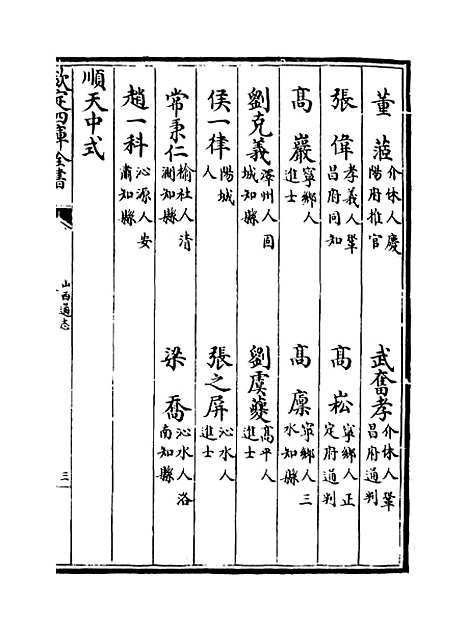 董蒞介休人慶陽府推官　武奮孝介休人鞏昌府通判
張偉孝義人鞏昌府同知　高崧寧鄉人正定府通判
高巖寧鄉人進士　高廪寧鄉人三水知縣
劉克義澤州人固城知縣　劉虞夔高平人進士
侯一律陽城人　張之屏沁水人進士
常秉仁榆社人清澗知縣　梁喬沁水人洛南知縣
趙一科沁源人安肅知縣
順天中式
欽定四庫全書
山西通志
三